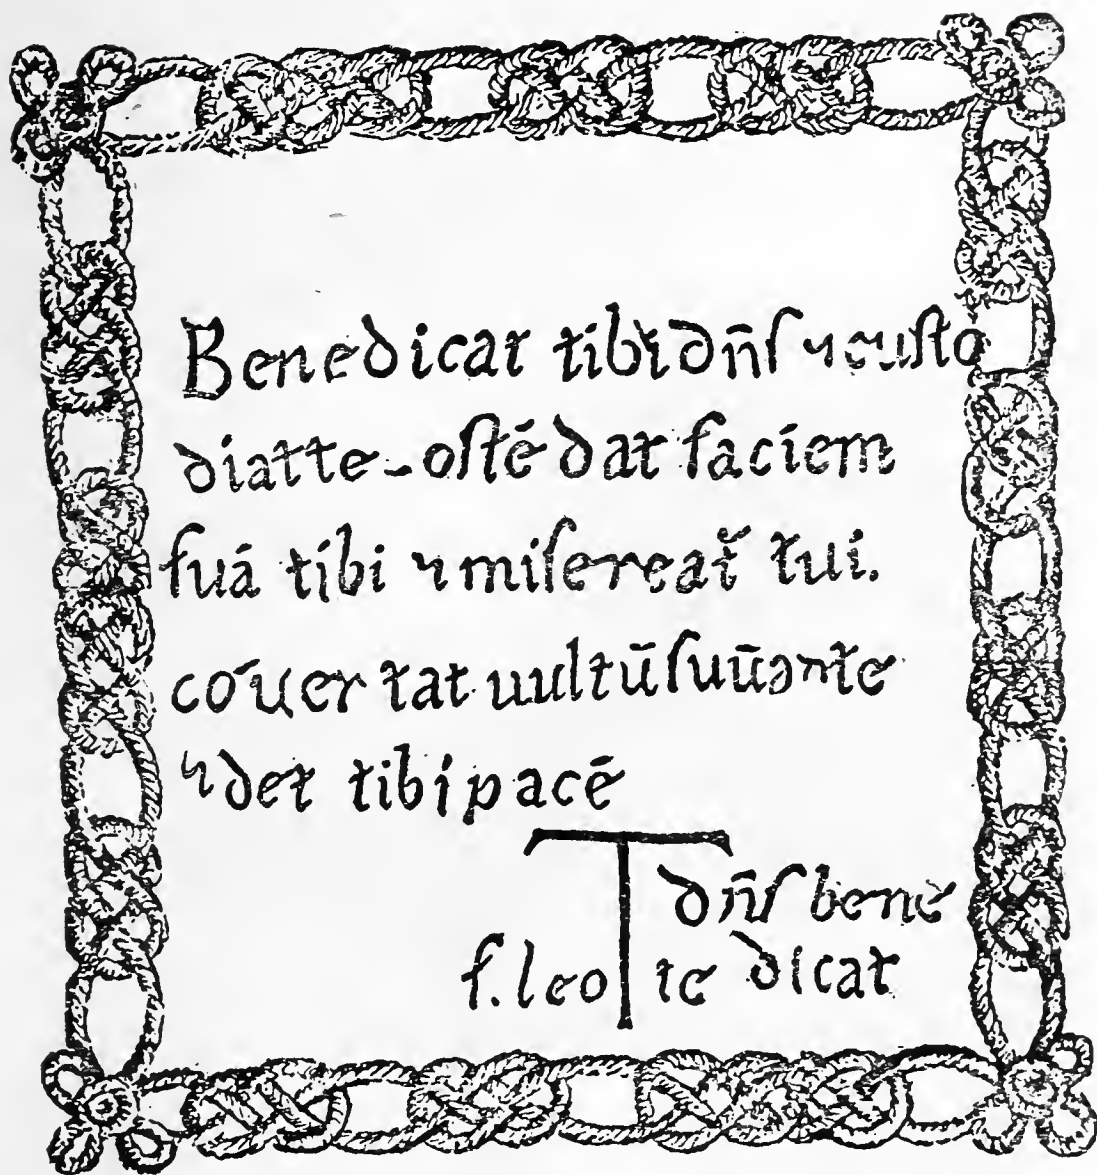 Benedicat tibi dñſ ⁊ cuſto
diat te - oſtēdat faciem
ſuā tibi ⁊ miſereat̃ tui.
cōuertat uultū ſuū ante
⁊ det tibi pacē
dñſ bene
f. leo T te dicat